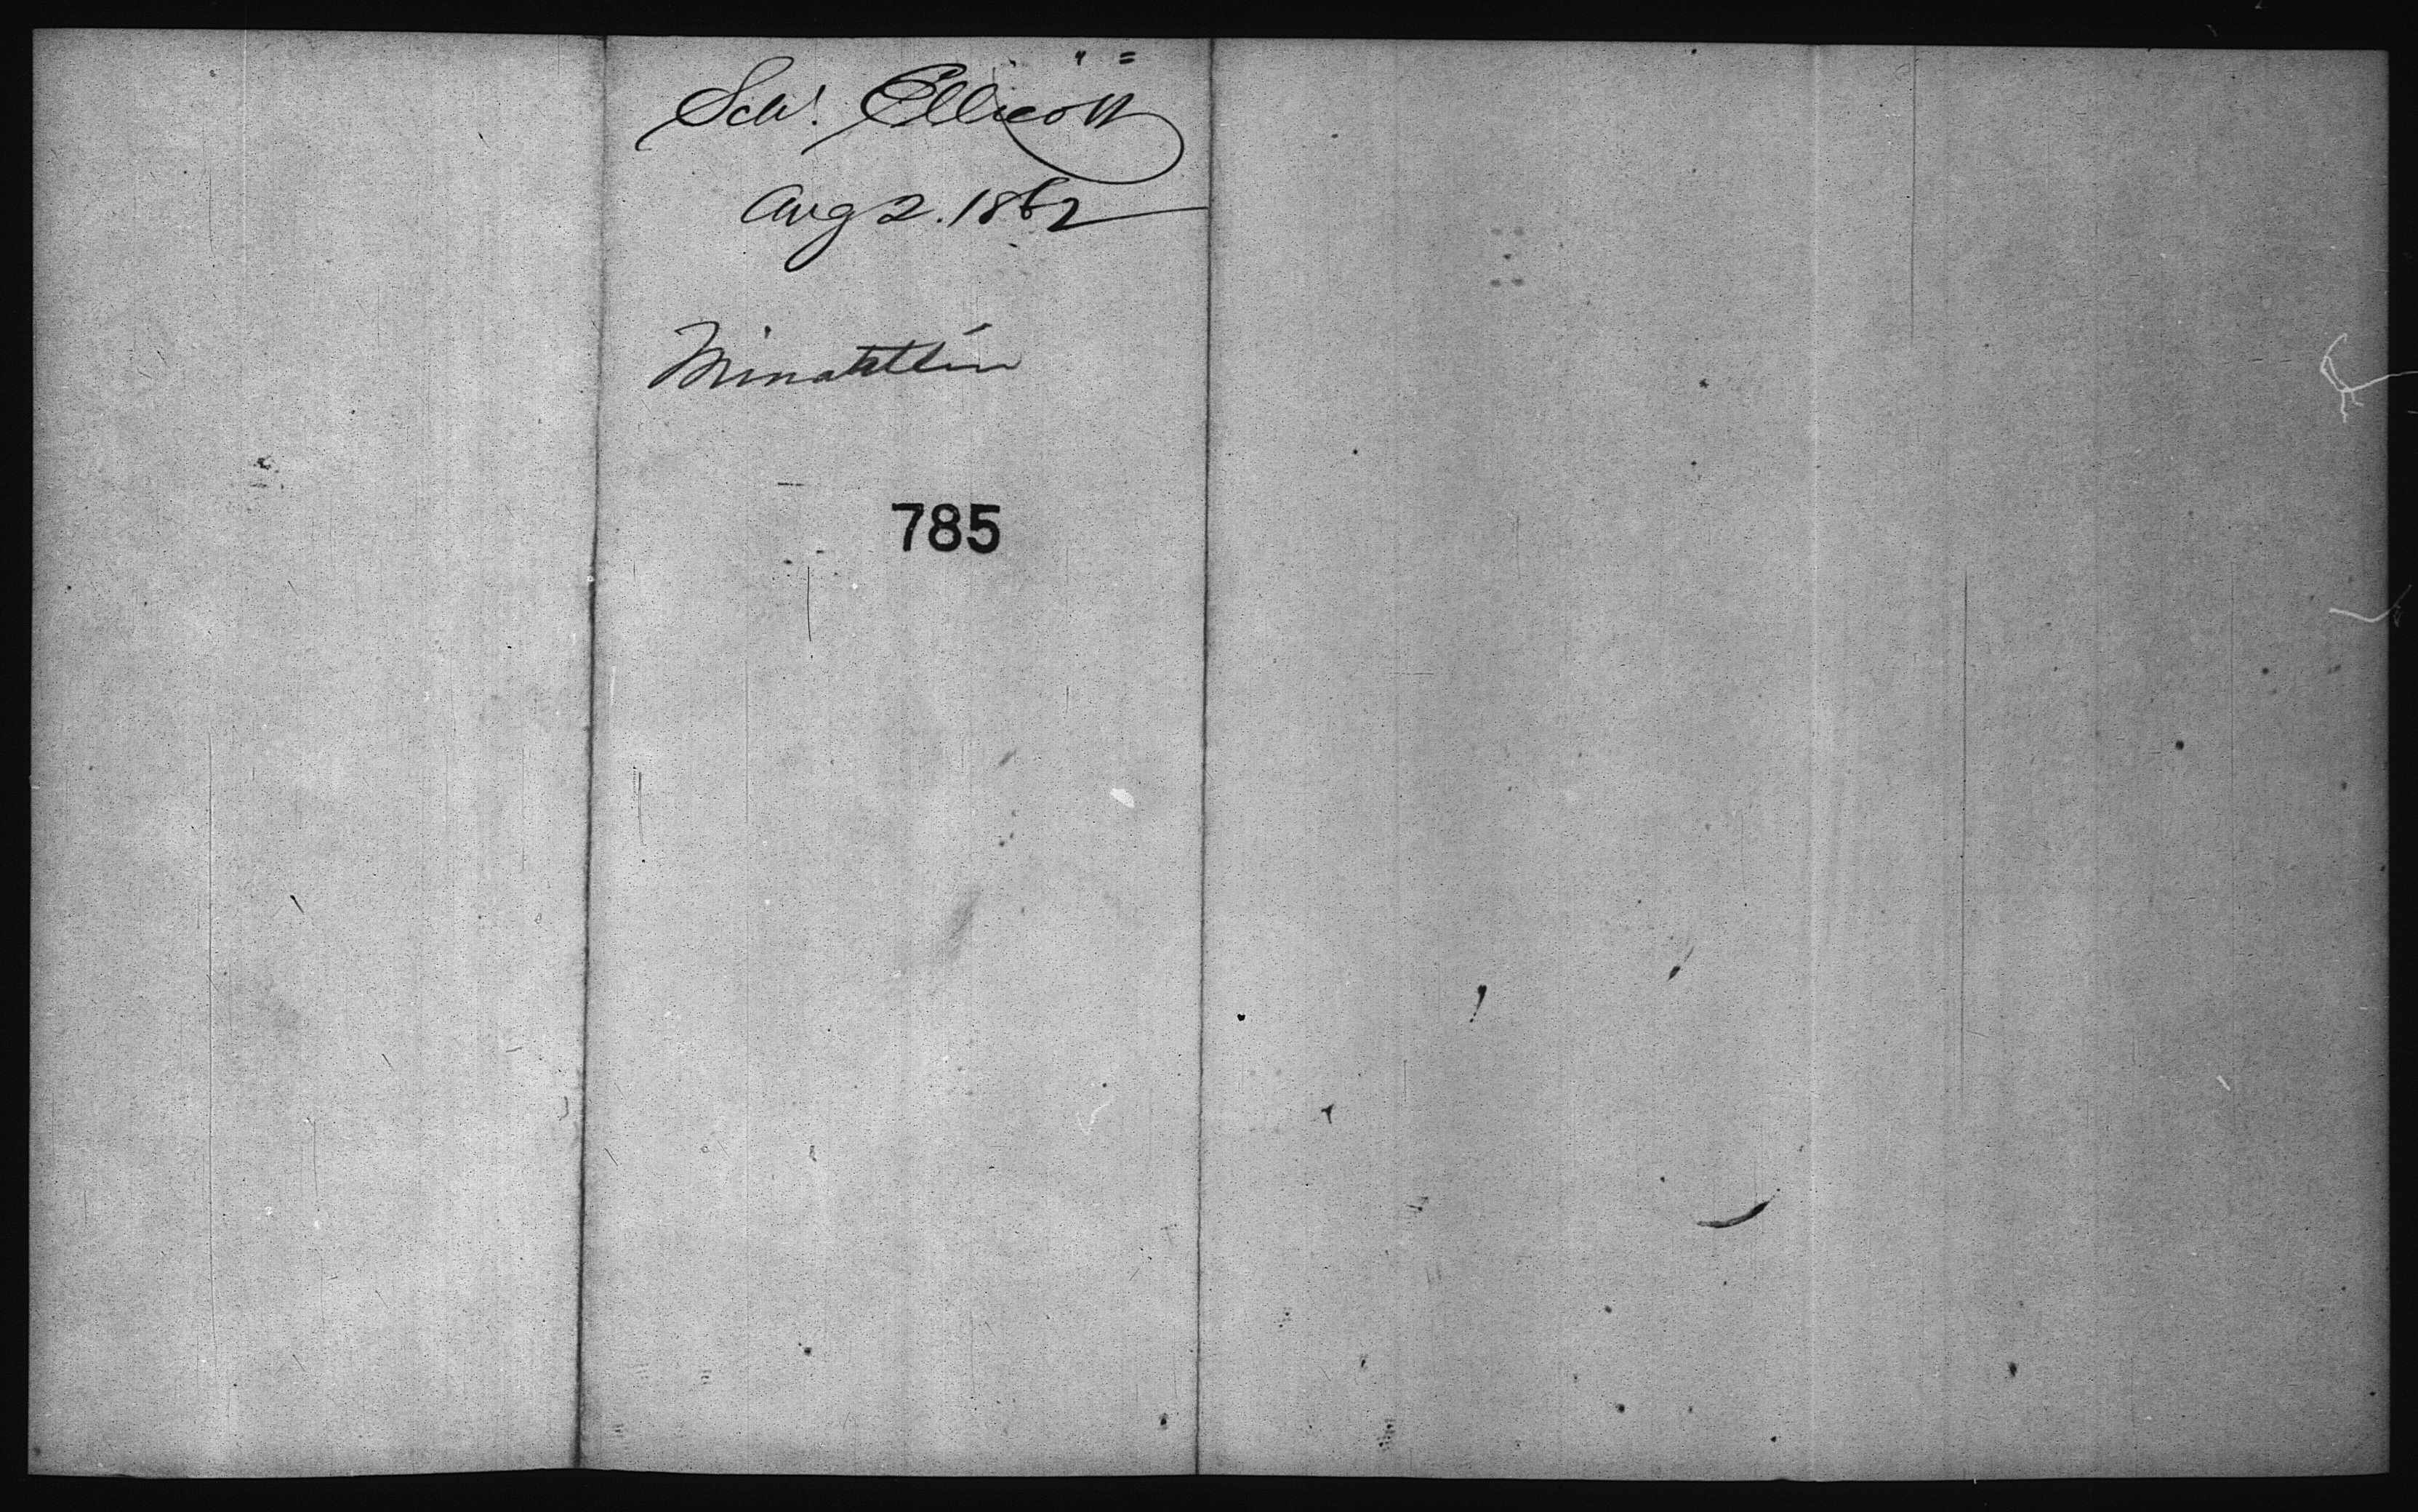 Schr. Ellicott
Aug 2. 1862
Minatitlan
785